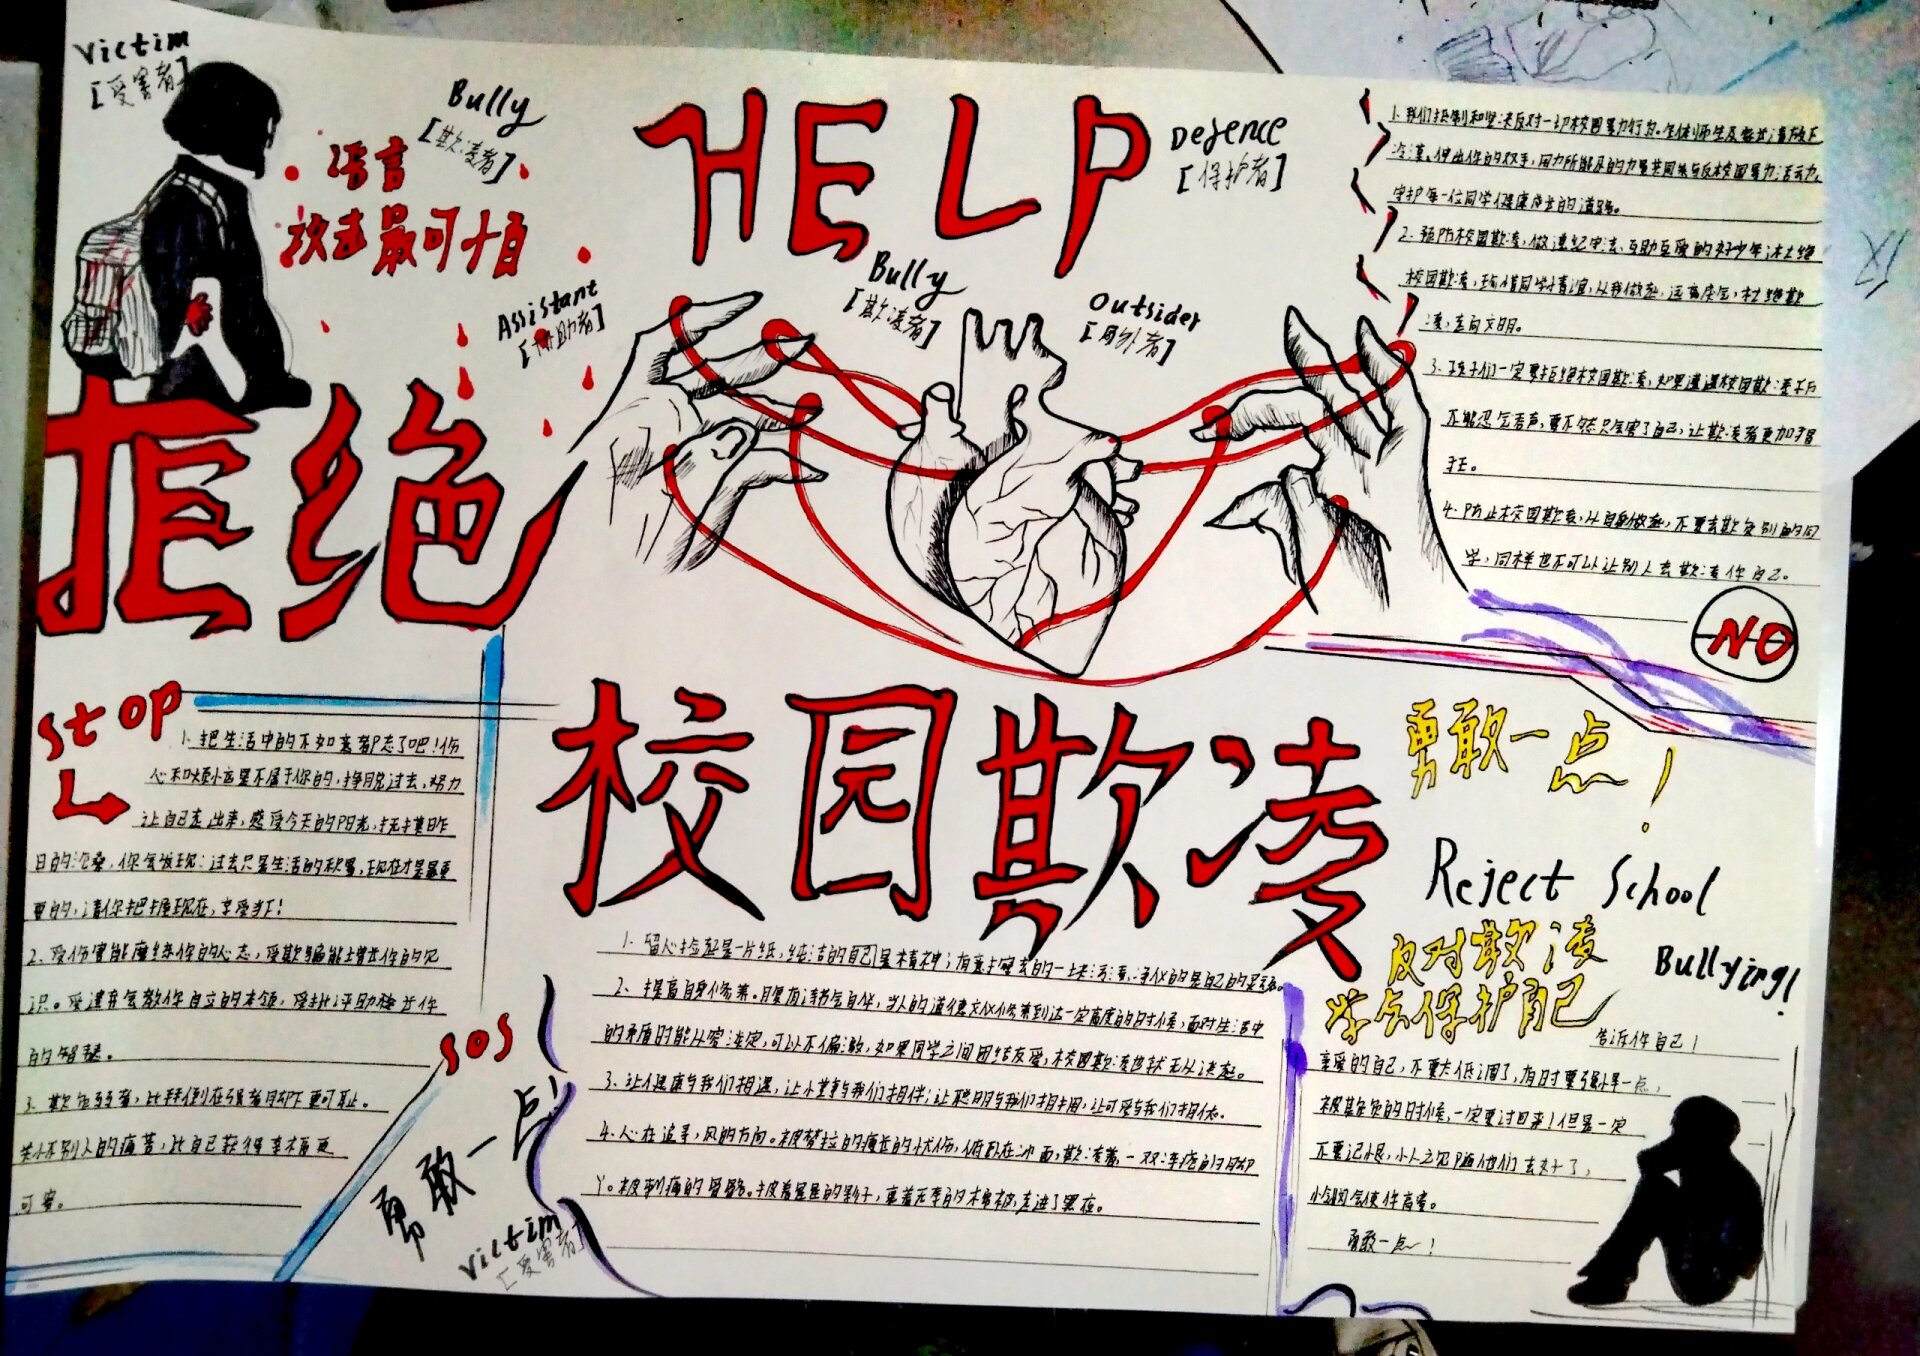 Victim
[受害者]
Bully
[欺凌者]
语言
攻击最可怕
HELP
Defence
[保护者]
Assistant
[协助者]
Bully
[欺凌者]
Outsider
[局外者]
拒绝
校园欺凌
1、我们抵制和坚决反对一切校园暴力行为。全体师生及
冷漠、伸出你的双手,用力所能及的力量共同参与反校园暴力活动力,
守护每一位同学健康成长的道路。
2、预防校园欺凌,做遵纪守法、互助互爱的好少年杜绝
校园欺凌,珍惜同学情谊,从我做起,远离戾气,杜绝欺
凌,走向文明。
3、孩子们一定要拒绝校园欺凌,如果遭遇校园欺凌千万
不能忍气吞声,要不然只会害了自己,让欺凌者更加猖
狂。
4、防止校园欺凌,从自身做起,不要去欺负别的同
学,同样也不可以让别人去欺凌你自己。
NO
Stop
1、把生活中的不如意都忘了吧!伤
心和命运是不属于你的,挣脱过去,努力
让自己走出来,感受今天的阳光,抚摸昨
日的沧桑,你会发现:过去只是生活的积累,现在才是最重
要的,请你把握现在,享受当下!
2、受伤害能磨练你的心态,受欺骗能增长你的见
识。受遗弃会教你自立的本领,受批评助长你
的智慧。
3、欺负弱者,比拜倒在强者脚下更可耻。
关心别人的痛苦,比自己获得幸福更
可贵。
SOS
勇敢一点!
Victim
[受害者]
1、留心捡起是一片纸,纯洁的自己是精神;有意擦去的一些污渍、净化的是自己的灵魂。
2、提高自身修养。腹有诗书气自华,当人的道德文化修养到达一定高度的时候,面对生活中
的矛盾时能从容淡定,可以不偏激,如果同学之间团结友爱,校园欺凌也就无从谈起。
3、让健康与我们相遇,让小堂与我们相伴;让聪明与我们相拥,让可爱与我们相依。
4、心在追寻,风的方向。
勇敢一点!
Reject School
Bullying!
反对欺凌
学会保护自己
告诉你自己!
亲爱的自己,不要太低调了,有时要强悍一点,
被欺负的时候,一定要讨回来!但是一定
不要记恨,小人之见随他们去好了,
会使你高贵。
勇敢一点!